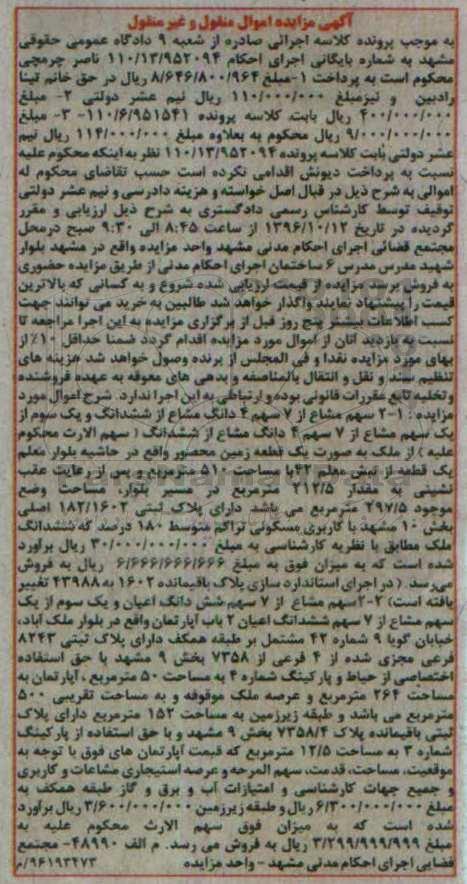 آگهی مزایده اموال منقول و غیر منقول
به موجب پرونده کلاسه اجرائی صادره از شعبه ۹ دادگاه عمومی حقوقی
مشهد به شماره بایگانی اجرای احکام ۱۱۰/۱۳/۹۵۲۰۹۴ ناصر چرمچی
محکوم است به پرداخت ۱-مبلغ ۸/۶۴۶/۸۰۰/۹۶۴ ریال در حق خانم تینا
رادبین و نیزمبلغ ۱۱۰/۰۰۰/۰۰۰ ریال نیم عشر دولتی ۲- مبلغ
۴۰۰/۰۰۰/۰۰۰ ریال بابت کلاسه پرونده ۱۱۰/۶/۹۵۱۵۴۱- ۳- مبلغ
۹/۰۰۰/۰۰۰/۰۰۰ ریال محکوم به بعلاوه مبلغ ۱۱۴/۰۰۰/۰۰۰ ریال نیم
عشر دولتی بابت کلاسه پرونده ۱۱۰/۱۳/۹۵۲۰۹۴ نظر به اینکه محکوم علیه
نسبت به پرداخت دیونش اقدامی نکرده است حسب تقاضای محکوم له
اموالی به شرح ذیل در قبال اصل خواسته و هزینه دادرسی و نیم عشر دولتی
توقیف توسط کارشناس رسمی دادگستری به شرح ذیل ارزیابی و مقرر
گردیده در تاریخ ۱۳۹۶/۱۰/۱۲ از ساعت ۸:۴۵ الی ۹:۳۰ صبح درمحل
مجتمع قضائی اجرای احکام مدنی مشهد واحد مزایده واقع در مشهد بلوار
شهید مدرس مدرس ۶ ساختمان اجرای احکام مدنی از طریق مزایده حضوری
به فروش برسد مزایده از قیمت ارزیابی شده شروع و به کسانی که بالاترین
قیمت را پیشنهاد نمایند واگذار خواهد شد طالبین به خرید می توانند جهت
کسب اطلاعات بیشتر پنج روز قبل از برگزاری مزایده به این اجرا مراجعه تا
نسبت به بازدید آنان از اموال مورد مزایده اقدام گردد ضمنا حداقل ۱۰٪ از
بهای مورد مزایده نقدا و فی المجلس از برنده وصول خواهد شد هزینه های
تنظیم سند و نقل و انتقال بالمناصفه و بدهی های معوقه به عهده فروشنده
و تخلیه تابع مقررات قانونی بوده و ارتباطی به این اجرا ندارد. شرح اموال مورد
مزایده : ۱-۲ سهم مشاع از ۷ سهم ۴ دانگ مشاع از ششدانگ و یک سوم از
یک سهم مشاع از ۷ سهم ۴ دانگ مشاع از ششدانگ ( سهم الارث محکوم
علیه ) از ملک به صورت یک قطعه زمین محصور واقع در حاشیه بلوار معلم
یک قطعه از نبش معلم ۴۲با مساحت ۵۱۰ مترمربع و پس از رعایت عقب
نشینی به مقدار ۲۱۲/۵ مترمربع در مسیر بلوار، مساحت وضع
موجود ۲۹۷/۵ مترمربع می باشد دارای پلاک ثبتی ۱۸۲/۱۶۰۲ اصلی
بخش ۱۰ مشهد با کاربری مسکونی تراکم متوسط ۱۸۰ درصد که ششدانگ
ملک مطابق با نظریه کارشناسی به مبلغ ۳۰/۰۰۰/۰۰۰/۰۰۰ ریال برآورد
شده است که به میزان فوق به مبلغ ۶/۶۶۶/۶۶۶/۶۶۶ ریال به فروش
می رسد. ( در اجرای استاندارد سازی پلاک باقیمانده ۱۶۰۲ به ۴۳۹۸۸ تغییر
یافته است) ۲-۲سهم مشاع از ۷ سهم شش دانگ اعیان و یک سوم از یک
سهم مشاع از ۷ سهم ششدانگ اعیان ۲ باب آپارتمان واقع در بلوار ملک آباد،
خیابان گویا ۹ شماره ۴۲ مشتمل بر طبقه همکف دارای پلاک ثبتی ۸۲۴۳
فرعی مجزی شده از ۴ فرعی از ۷۳۵۸ بخش ۹ مشهد با حق استفاده
اختصاصی از حیاط و پارکینگ شماره ۴ به مساحت ۵۰ مترمربع ، آپارتمان به
مساحت ۲۶۴ مترمربع و عرصه ملک موقوفه و به مساحت تقریبی ۵۰۰
مترمربع می باشد و طبقه زیرزمین به مساحت ۱۵۲ مترمربع دارای پلاک
ثبتی باقیمانده پلاک ۷۳۵۸/۴ بخش ۹ مشهد و با حق استفاده از پارکینگ
شماره ۳ به مساحت ۱۲/۵ مترمربع که قیمت آپارتمان های فوق با توجه به
موقعیت، مساحت، قدمت، سهم العرصه و عرصه استیجاری مشاعات و کاربری
و جمیع جهات کارشناسی و امتیازات آب و برق و گاز طبقه همکف به
مبلغ ۶/۳۰۰/۰۰۰/۰۰۰ ریال و طبقه زیرزمین ۳/۶۰۰/۰۰۰/۰۰۰ ریال برآورد
شده است که به میزان فوق سهم الارث محکوم علیه به
مبلغ ۳/۲۹۹/۹۹۹/۹۹۹ ریال به فروش می رسد. م الف ۴۸۹۹۰- مجتمع
قضایی اجرای احکام مدنی مشهد - واحد مزایده ۹۶۱۹۳۲۷۳/م